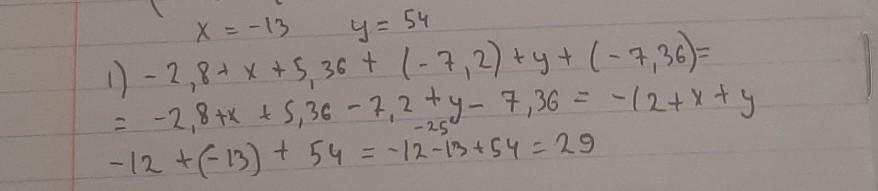 x = -13 y = 54
1) -2,8 + x + 5,36 + (-7,2) + y + (-7,36) =
= -2,8 + x + 5,36 - 7,2 + y - 7,36 = -12 + x + y
-25
-12 + (-13) + 54 = -12 - 13 + 54 = 29